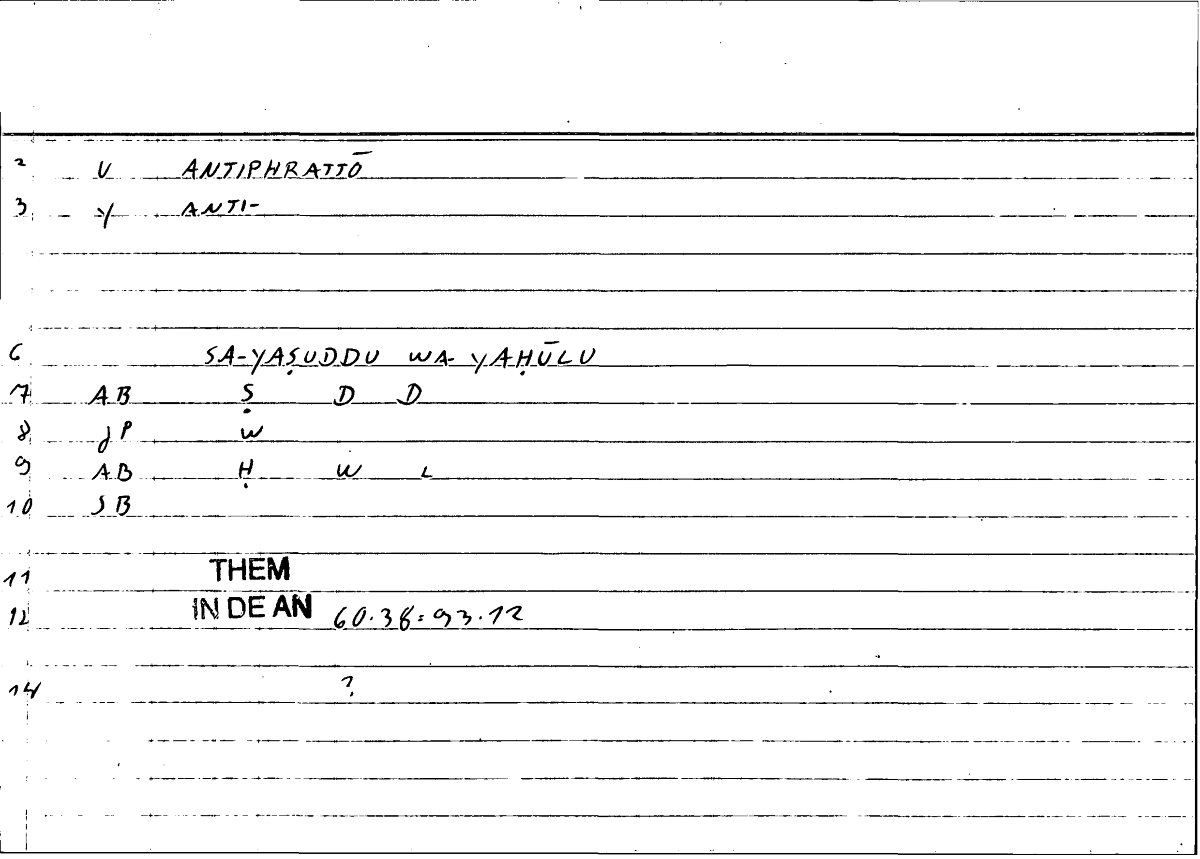 2 U ANTIPHRATTŌ
3 Y ANTI-
6 SA-YAṢUDDU WA-YAḤŪLU
7 AB Ṣ D D
8 JP W
9 AB Ḥ W L
10 SB
11 THEM
12 IN DE AN 60.38:93.12
14 ?